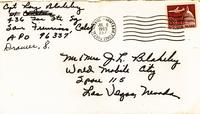 Cpt Ray Blakeley
436 For Sta Sq
San Francisco, Calif
APO 96337
Drawer, S.
Mr & Mrs J. L. Blakeley
World Mobile City
Space 115
Las Vegas, Nevada